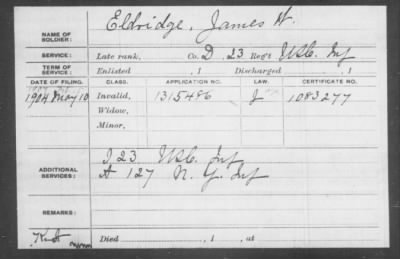 Eldridge, James H.
NAME OF SOLDIER:
SERVICE: Late rank, Co. D, 23 Reg't U.S.C. Inf
TERM OF SERVICE: Enlisted , 1 Discharged , 1
DATE OF FILING. CLASS. APPLICATION NO. LAW. CERTIFICATE NO.
1904 May 10 Invalid, 1315486 J 1083277
Widow,
Minor,
ADDITIONAL SERVICES: I 23 U.S.C. Inf
A 127 N.Y. Inf
Died , 1 , at